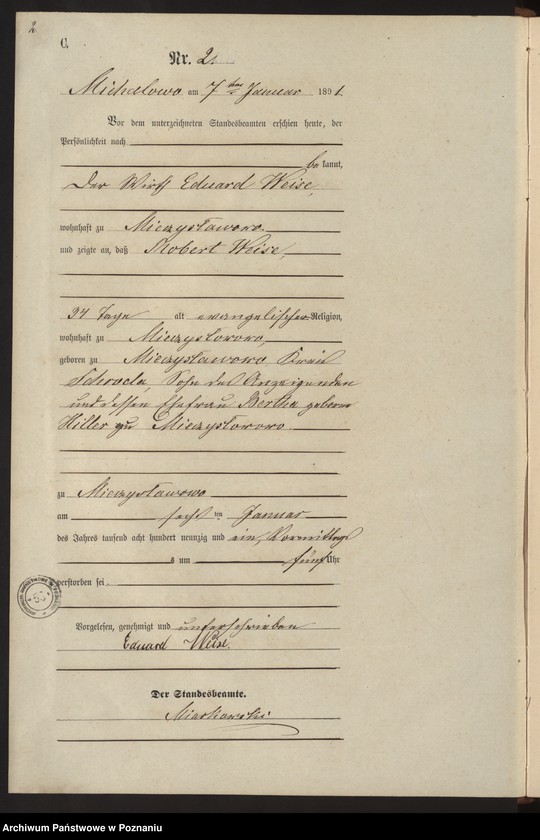 2
C.
Nr. 2.
Michalowo am 7ten Januar 1891.
Vor dem unterzeichneten Standesbeamten erschien heute, der
Persönlichkeit nach
bekannt,
Der Wirth Eduard Weise,
wohnhaft zu Mieczysławowo.
und zeigte an, daß Robert Weise,
34 Tage alt evangelischer Religion,
wohnhaft zu Mieczysławowo,
geboren zu Mieczysławowo, Kreis
Schroda, Sohn des Anzeigenden
und dessen Ehefrau Bertha geborne
Hiller zu Mieczysławowo
zu Mieczysławowo
am sechsten Januar
des Jahres tausend acht hundert neunzig und ein, Vormittags
s um fünf Uhr
verstorben sei.
Vorgelesen, genehmigt und unterschrieben
Eduard Weise.
Der Standesbeamte.
Miaskowski
Archiwum Państwowe w Poznaniu